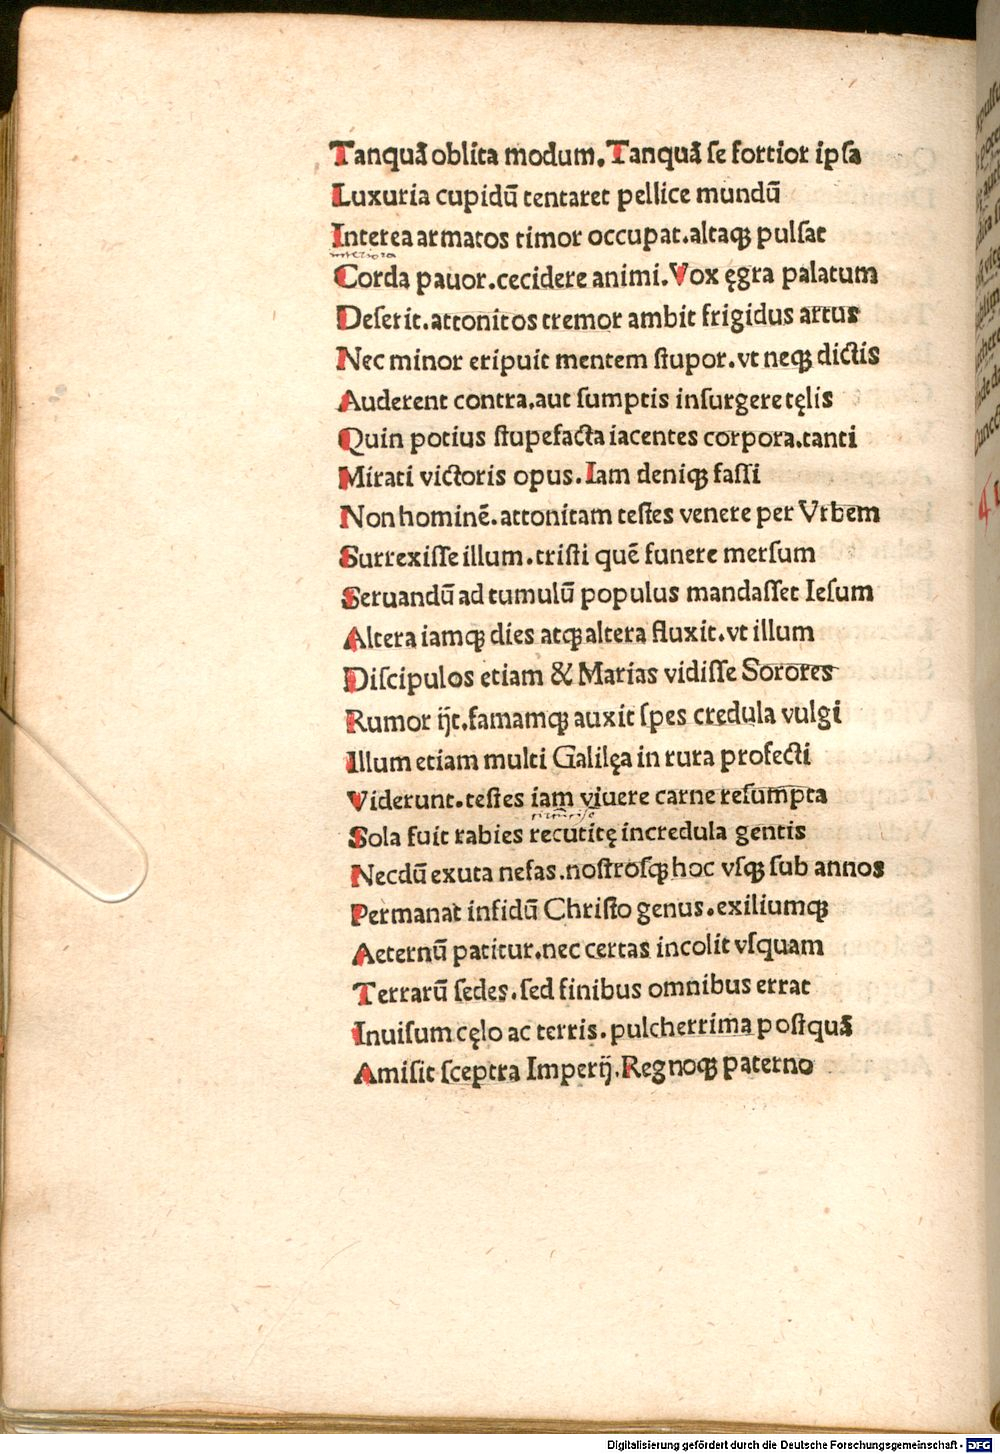 Tanquā oblita modum. Tanquā ſe fortior ipſa
Luxuria cupidū tentaret pellice mundū
Interea armatos timor occupat. altaqꝫ pulſat
Corda pauor. cecidere animi. Vox ęgra palatum
Deſerit. attonitos tremor ambit frigidus artus
Nec minor eripuit mentem ſtupor. vt neqꝫ dictis
Auderent contra. aut ſumptis inſurgere tęlis
Quin potius ſtupefacta iacentes corpora. tanti
Mirati victoris opus. Iam deniqꝫ faſſi
Non hominē. attonitam teſtes venere per Vrbem
Surrexiſſe illum. triſti quē funere merſum
Seruandū ad tumulū populus mandaſſet Ieſum
Altera iamqꝫ dies atqꝫ altera fluxit. vt illum
Diſcipulos etiam & Marias vidiſſe Sorores
Rumor ijt. famamqꝫ auxit ſpes credula vulgi
Illum etiam multi Galilęa in rura profecti
Viderunt. teſtes iam viuere carne reſumpta
Sola fuit rabies recutitę incredula gentis
Necdū exuta nefas. noſtroſqꝫ hoc vſqꝫ ſub annos
Permanat infidū Chriſto genus. exiliumqꝫ
Aeternū patitur. nec certas incolit vſquam
Terrarū ſedes. ſed finibus omnibus errat
Inuiſum cęlo ac terris. pulcherrima poſtquā
Amiſit ſceptra Imperij. Regnoqꝫ paterno
Digitalisierung gefördert durch die Deutsche Forschungsgemeinschaft - DFG